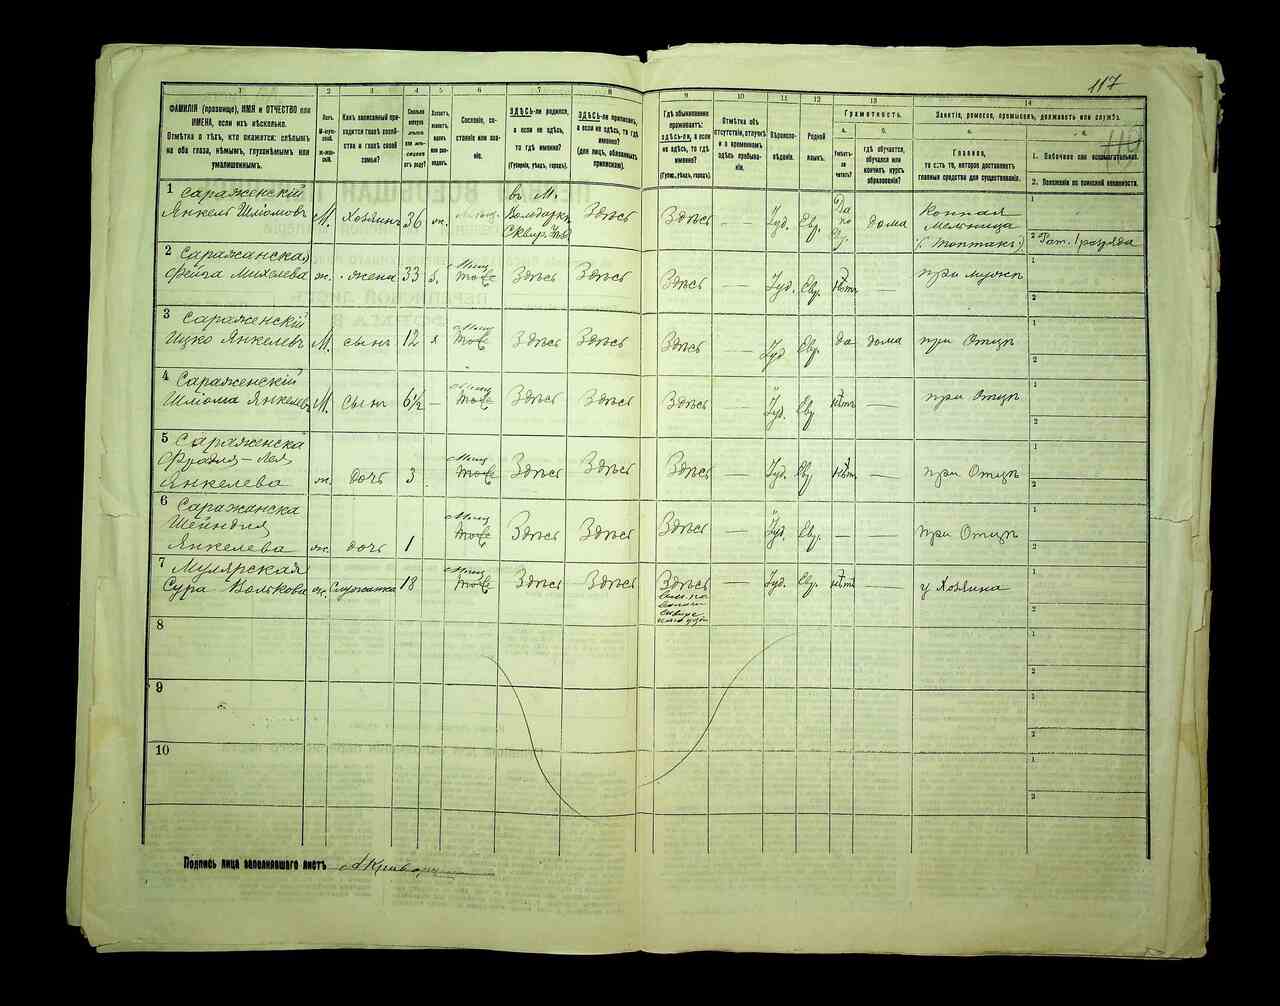 117
1 2 3 4 5 6 7 8 9 10 11 12 13 14
ФАМИЛІЯ (прозвище), ИМЯ и ОТЧЕСТВО или ИМЕНА, если ихъ нѣсколько.
Отмѣтка о тѣхъ, кто окажется: слѣпымъ на оба глаза, нѣмымъ, глухонѣмымъ или умалишеннымъ.
Полъ.
Какъ записанный приходится главѣ хозяйства и главѣ своей семьи?
Сословіе, состояніе или званіе.
ЗДѢСЬ-ли родился, а если не здѣсь, то гдѣ именно?
(Губернія, уѣздъ, городъ).
ЗДѢСЬ-ли приписанъ, а если не здѣсь, то гдѣ именно?
(для лицъ, обязанныхъ припискою).
Гдѣ обыкновенно проживаетъ: здѣсь-ли, а если не здѣсь, то гдѣ именно?
(Губер., уѣздъ, городъ).
Отмѣтка объ отсутствіи, отлучкѣ и о временномъ здѣсь пребываніи.
Вѣроисповѣданіе.
Родной языкъ.
Грамотность.
а. Умѣетъ-ли читать?
б. гдѣ обучается, обучался или кончилъ курсъ образованія?
Занятіе, ремесло, промыселъ, должность или служба.
а. Главное, то есть то, которое доставляетъ главныя средства для существованія.
б.
1. Побочное или вспомогательное.
2. Положеніе по воинской повинности.
1 Сараженскій
Янкель Шліомовъ М. Хозяинъ 36 ж. въ М. Володарка Сквир. Уѣз Здѣсь Здѣсь — Іуд. Евр. Да дома Конная мельница (Топтакъ) 2 Рат. 1 разряда
2 Сараженская
Фейга Михелева ж. жена 33 Мѣщ Здѣсь Здѣсь Здѣсь — Іуд. Евр. нѣтъ при мужѣ
3 Сараженскій
Ицко Янкелевъ М. сынъ 12 х Мѣщ Здѣсь Здѣсь Здѣсь — Іуд Евр. да дома при Отцѣ
4 Сараженскій
Шліома Янкелевъ М. Сынъ 6½ — Мѣщ Здѣсь Здѣсь Здѣсь — Іуд. Евр нѣтъ — при Отцѣ
5 Сараженска
Фрадля-Лея
Янкелева ж. дочь 3 Мѣщ Здѣсь Здѣсь Здѣсь — Іуд. Евр нѣт. — при Отцѣ
6 Саражанска
Шейндля
Янкелева ж. дочь 1 Мѣщ Здѣсь Здѣсь Здѣсь — Іуд. Евр. — — при Отцѣ
7 Мулярская
Сура Волькова ж. Служанка 18 Мѣщ Здѣсь Здѣсь Здѣсь — Іуд. Евр. нѣтъ у Хозяина
8
9
10
Подпись лица заполнявшаго листъ